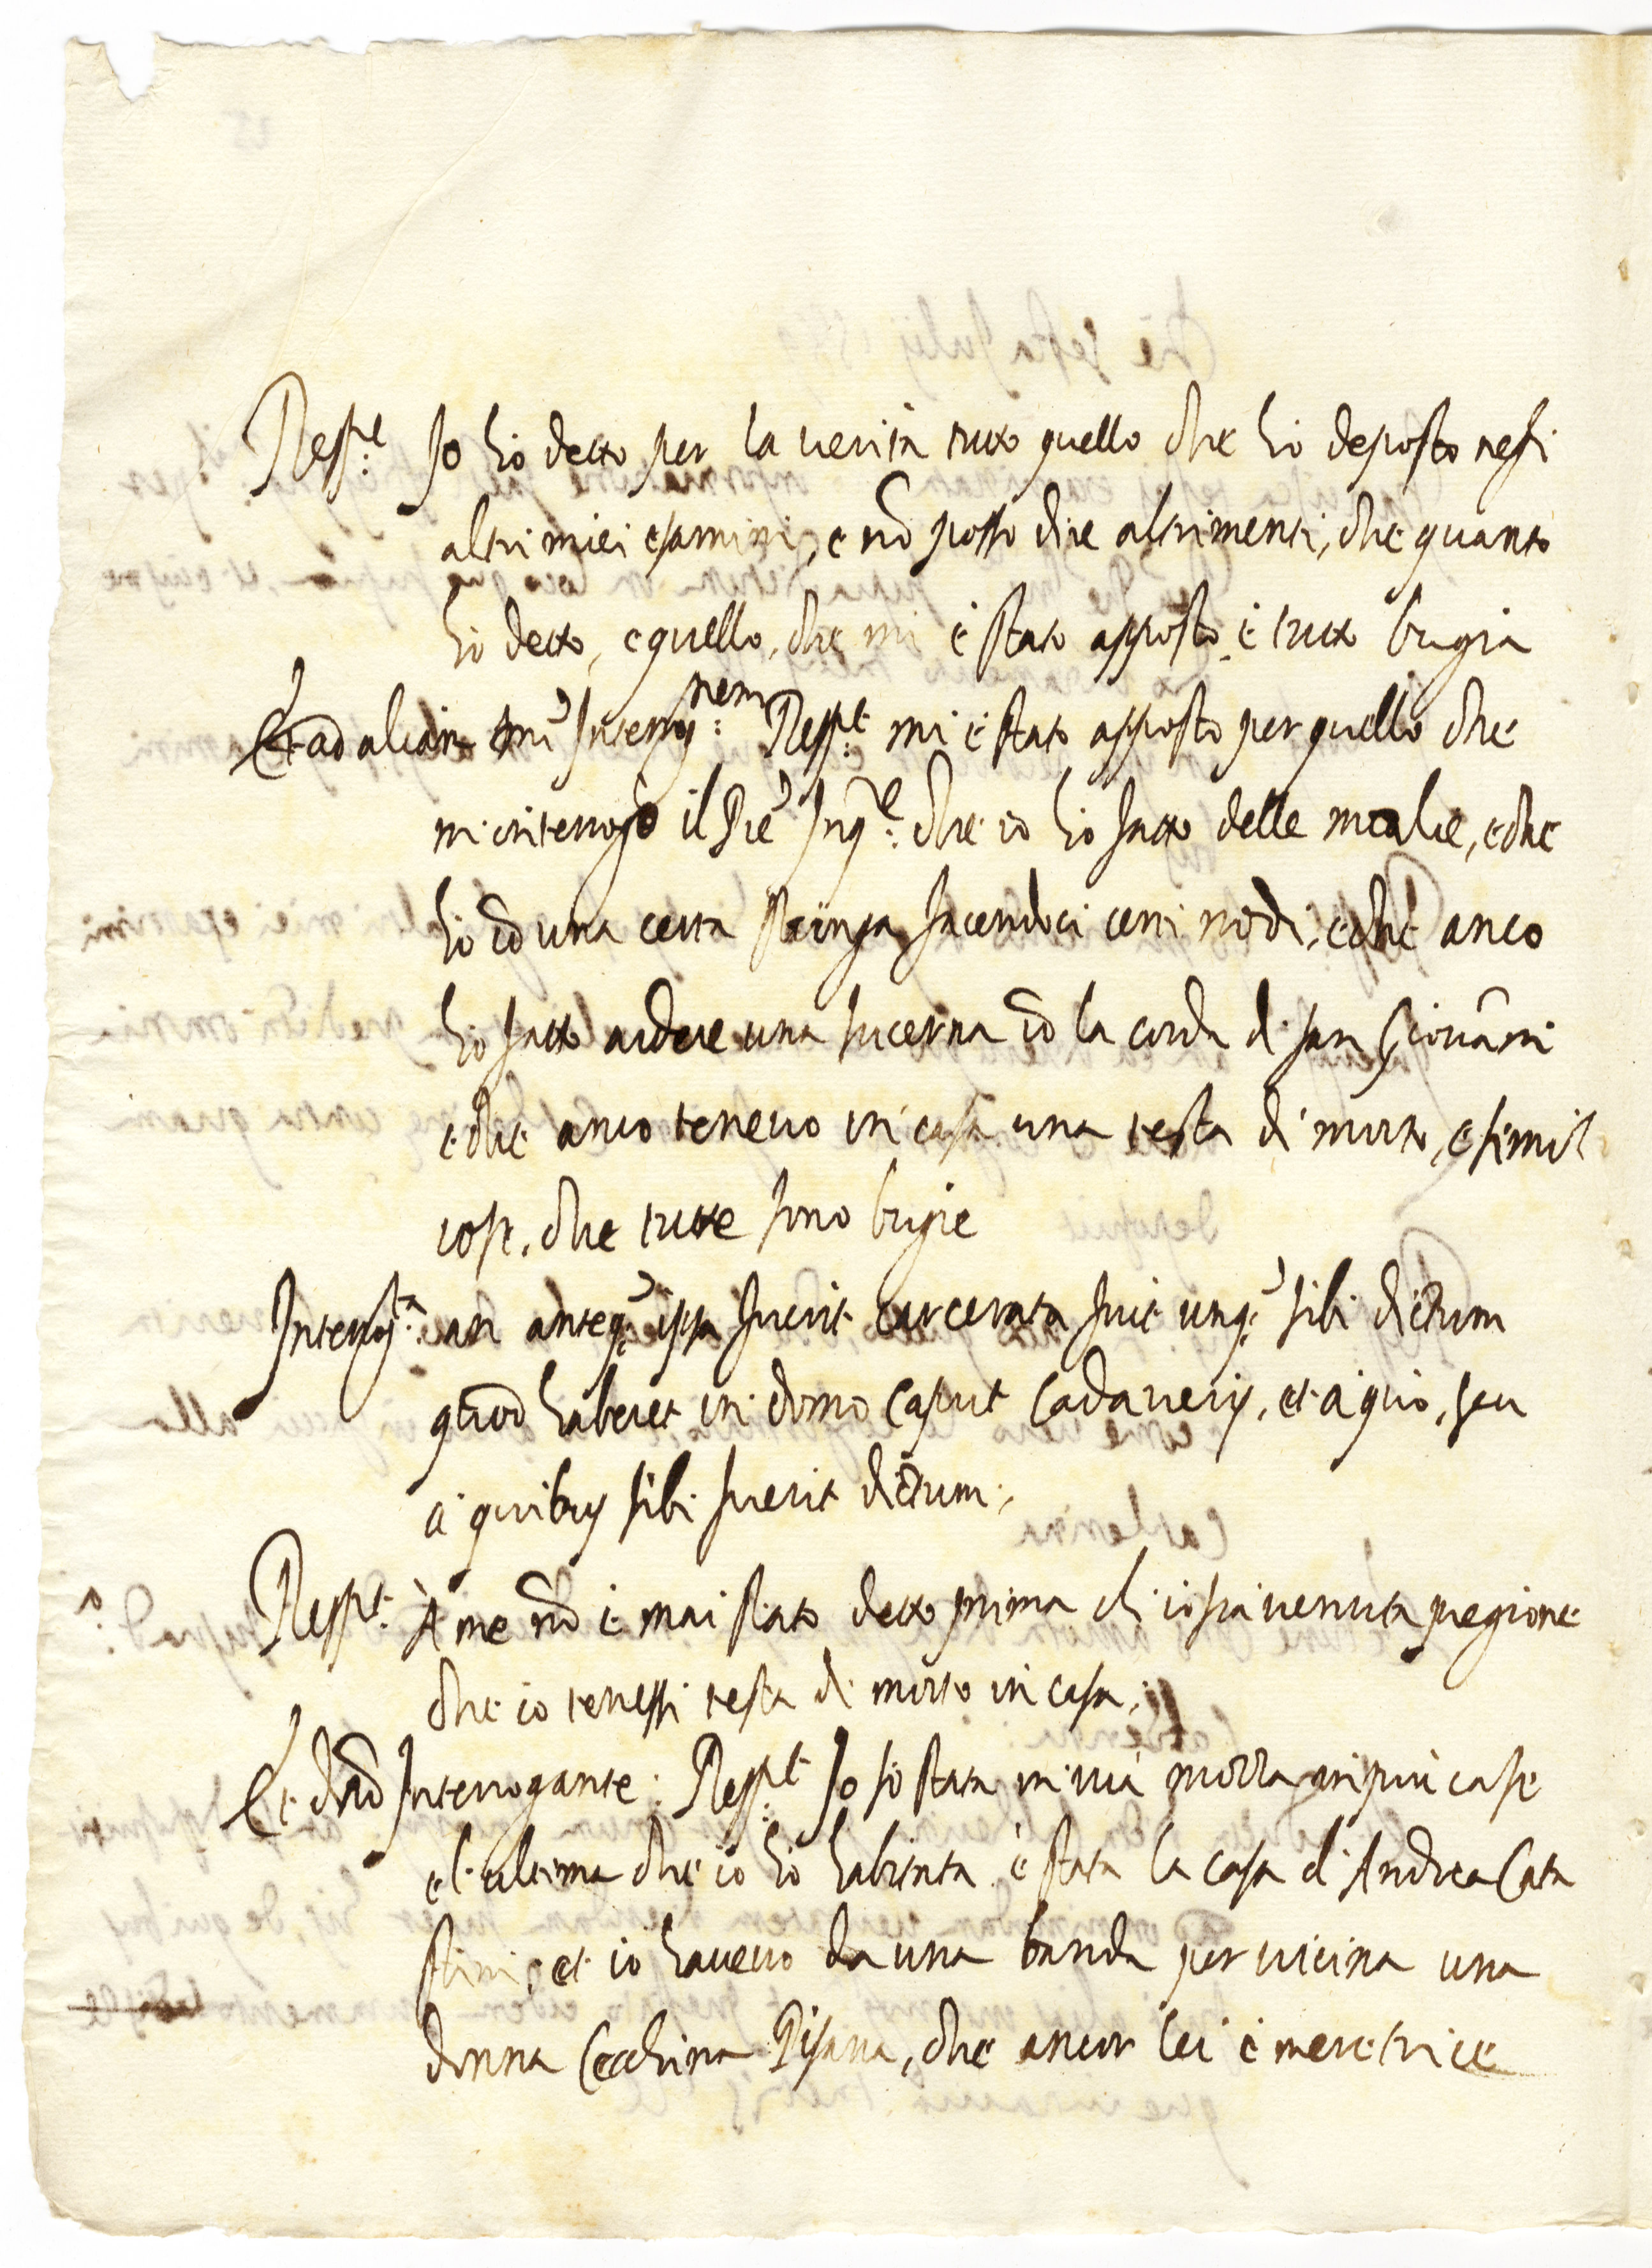 Resp.t Io hò detto per la verità tutto quello che hò deposto nesi
altri miei esamini, e nõ posso dire altrimenti, che quanto
hò detto, e quello, che mi è stato apposto è tutto bugia
Et ad aliam Interrog.nem Resp.t mi è stato apposto per quello che
m'interrogò il Pre Inq.re che io hò fatto delle malie, e che
hò cõ una certa stringa facendoci certi nodi, e che anco
hò fatto ardere una lucerna cõ la corda di san Giovãni
e che anco tenevo in casa una testa di morto, e simil
cose, che tutte sono bugie
Interrog.ta an anteq. ipsa fuerit carcerata fuit unq. sibi dictum
quod haberet in domo caput cadaveris, et à quo, seu
à quibus sibi fuerit dictum.
Resp.t À me nõ è mai stato detto prima ch'io sia venuta pregione
che io tenessi testa di morto in casa.
Et dño Interrogante. Resp.t Io so stata in via mozza in più case
e l'ultima che io hò habitata è stata la casa d'Andrea Cata
stini, et io havevo da una banda per vicina una
donna Cecchina Pisana, che ancor lei è meretrice